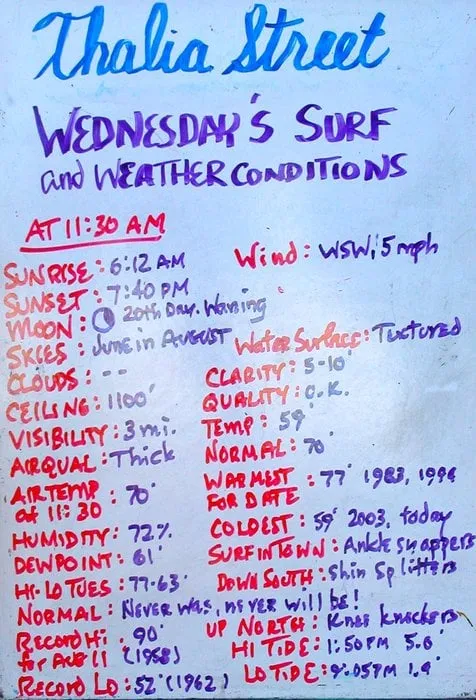 Thalia Street
WEDNESDAY'S SURF
and WEATHER CONDITIONS
AT 11:30 AM
SUNRISE: 6:12 AM
SUNSET: 7:40 PM
MOON: 20th Day. Waning
SKIES: June in AUGUST
CLOUDS: --
CEILING: 1100'
VISIBILITY: 3 mi.
AIRQUAL: Thick
AIRTEMP
at 11:30 : 70°
HUMIDITY: 72%
DEWPOINT: 61°
HI-LO TUES: 77-63°
NORMAL: NEVER WAS, NEVER WILL BE!
RECORD Hi : 90°
for AUG 11 (1958)
RECORD LO: 52° (1962)
Wind: WSW, 5 mph
Water Surface: Textured
CLARITY: 5-10'
QUALITY: O.K.
TEMP: 59°
NORMAL: 70°
WARMEST : 77° 1983, 1994
FOR DATE
COLDEST: 59° 2003, today
SURF IN TOWN: Ankle snappers
DOWN SOUTH: Shin Splitters
UP NORTH: Knee knockers
HI TIDE: 1:50 PM 5.0'
LO TIDE: 9:05 PM 1.9'